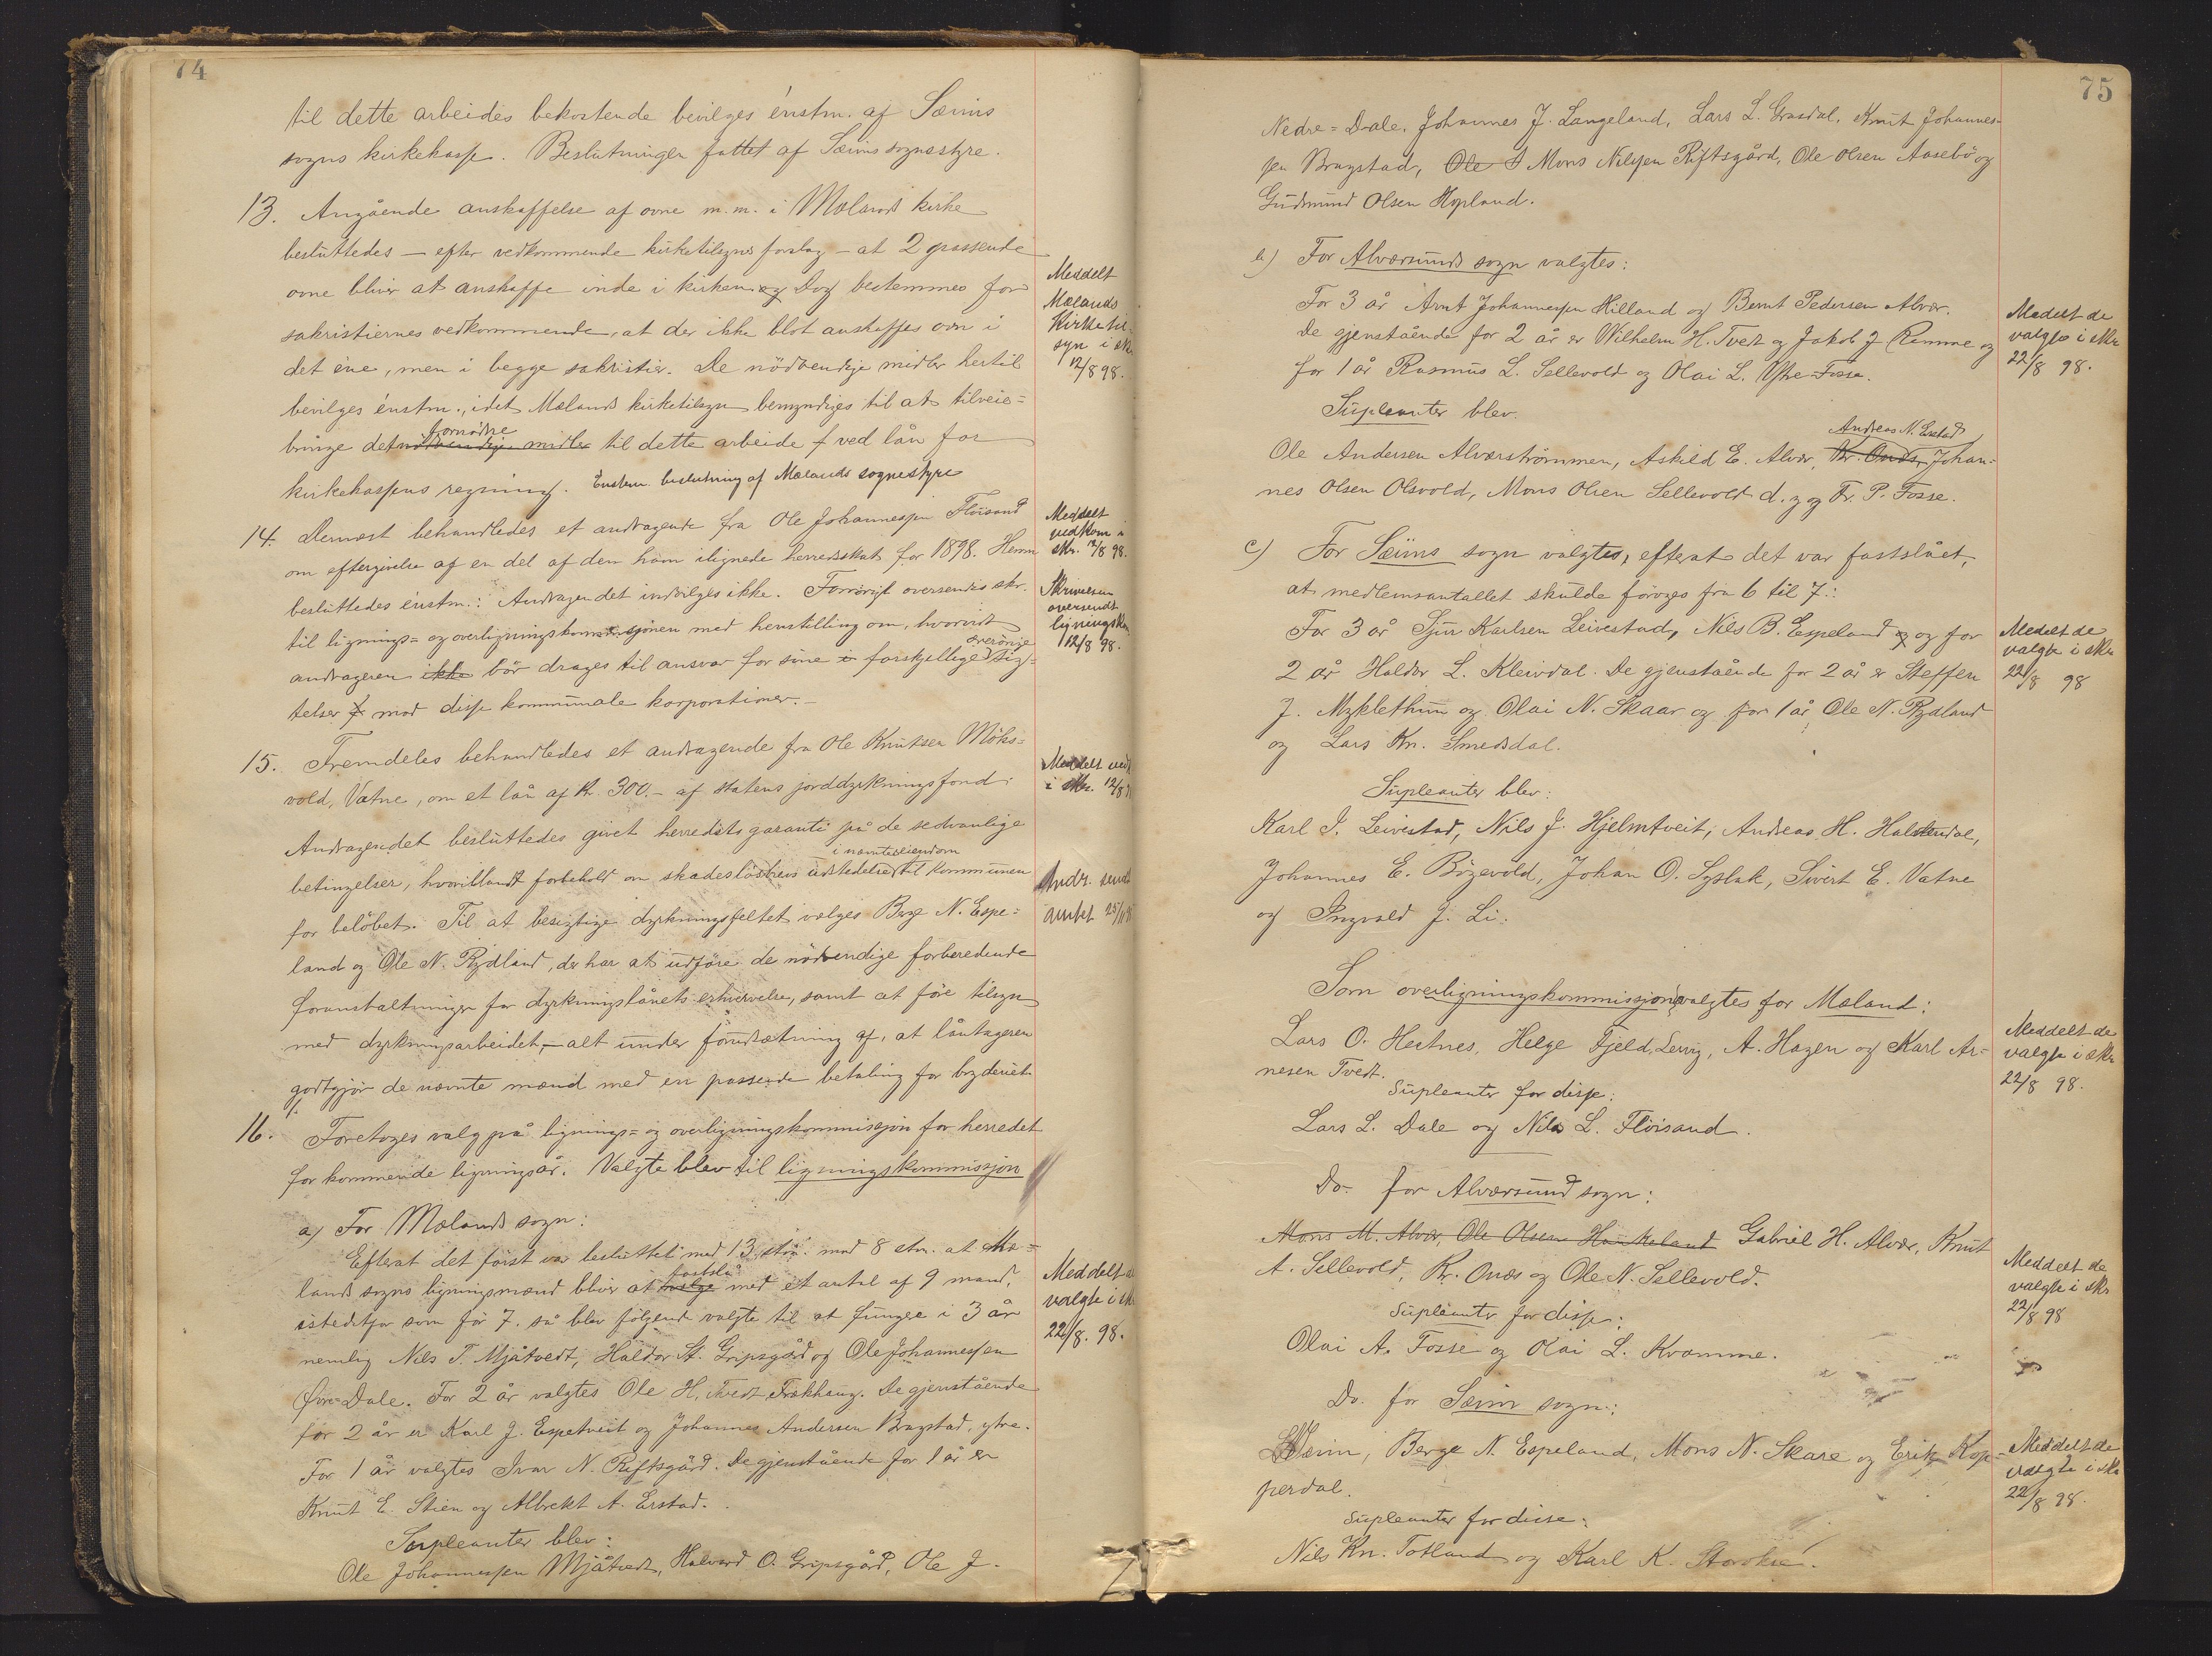 74
til dette arbeides bekostende bevilges énstm. af Sæims
sogns kirkekasse. Beslutningen fattet af Sæims sognestyre.
13. Angående anskaffelse af ovne m.m. i Mælands kirke
besluttedes – efter vedkommende kirketilsyns forslag – at 2 passende
ovne bliver at anskaffe inde i kirken og Dog bestemmes for
sakristiernes vedkommende, at der ikke blot anskaffes ovn i
det éne, men i begge sakristier. De nödvendige midler hertil
bevilges énstm., idet Mælands kirketilsyn bemyndiges til at tilveie=
bringe det nödvendige midler fornødne til dette arbeide f ved lån for
kirkekassens regning. Enstem. beslutning af Mælands sognestyre
Meddelt
Mælands
Kirketil-
syn i skr.
12/8 98.
14. Dernæst behandledes et andragende fra Ole Johannessen Flöisand
om eftergivelse af en del af den ham ilignede herredsskat for 1898. Herom
besluttedes énstm.: Andragendet indvilges ikke. Forövrigt oversendes skr.
til lignings= og overligningskommissjonen med henstilling om, hvorvidt
andrageren ikke bör drages til ansvar for sine i forskjellige ærerörige sig=
telser f mod disse kommunale korporationer. –
Meddelt
vedkom i
skr. 12/8 98.
Skrivelsen
oversendt
ligningsk
12/8 98.
15. Fremdeles behandledes et andragende fra Ole Knutsen Möks=
vold, Vatne, om et lån af kr. 300.– af statens jorddyrkningsfond.
Andragendet besluttedes givet herredets garanti på de sedvanlige
betingelser, hvoriblandt forbehold om skadeslösbrevs udstedelse i nævnte eiendom til kommunen
for belöbet. Til at besigtige dyrkningsfeltet vælges Berge N. Espe=
land og Ole N. Rydland, der har at udföre de nödvendige forberedende
foranstaltninger for dyrkningslånets erhvervelse, samt at före tilsyn
med dyrkningsarbeidet, – alt under forudsætning af, at låntageren
godtgjör de nævnte mænd med en passende betaling for bryderiet.
Meddelt vedk
i skr. 12/8
Andr. sendt
amtet 25/11
16. Foretoges valg på lignings= og overligningskommissjon for herredet
for kommende ligningsår. Valgte blev til ligningskommissjon
a) For Mælands sogn:
Efterat det först var besluttet med 13 stm. mod 8 stm. at Mæ=
lands sogns ligningsmænd bliver at vælge fastslå med et antal af 9 mand,
istedetfor som för 7, så blev fölgende valgte til at fungere i 3 år
nemlig Nils T. Mjåtvedt, Haldor St. Gripsgård og Ole Johannessen
Övre=Dale. For 2 år valgtes Ole H. Tvedt Trækhaug. De gjenstående
for 2 år er Karl J. Espetveit og Johannes Andersen Bragstad, ytre.
For 1 år valgtes Ivar N. Riftsgård. De gjenstående for 1 år er
Knut E. Stien og Albrekt A. Erstad.
Supleanter blev:
Ole Johannessen Mjåtvedt, Halvard O. Gripsgård, Ole J.
Meddelt de
valgte i skr
22/8. 98.
75
Nedre=Dale, Johannes J. Langeland, Lars L. Grasdal, Knut Johannes=
sen Bragstad, Ole I Mons Nilssen Riftsgård, Ole Olsen Aasebö og
Gudmund Olsen Hopland.
b) For Alværsunds sogn valgtes:
For 3 år Arnt Johannessen Hilland og Bernt Pedersen Alvær.
De gjenstående for 2 år er Wilhelm H. Tvedt og Jakob J Remme og
for 1 år Rasmus L. Sellevold og Olai L. Ystre-Fosse.
Supleanter blev.
Ole Andersen Alværströmmen, Askild E. Alvær, Kr. Onæs Andreas N. Erstad Johan=
nes Olsen Olsvold, Mons Olsen Sellevold d. y og Fr. P. Fosse.
Meddelt de
valgte i skr
22/8 98.
c) For Sæims sogn valgtes, efterat det var fastslået,
at medlemsantallet skulde foröges fra 6 til 7:
For 3 år Sjur Karlsen Leivestad, Nils B. Espeland og og for
2 år Haldor L. Kleivdal. De gjenstående for 2 år er Steffen
J. Myklethun og Olai N. Skaar og for 1 år Ole N. Rydland
og Lars Kn. Smedsdal.
Supleanter blev:
Karl I. Leivestad, Nils J. Hjelmtveit, Andreas H. Halstendal,
Johannes E. Bögevold, Johan O. Syslak, Sivert E. Vatne
og Ingvald J. Li.
Meddelt de
valgte i skr
22/8 98
Som overligningskommissjon valgtes for Mæland:
Lars O. Hestnes, Helge Fjeldservig, A. Hagen og Karl Ar=
nesen Tvedt.
Supleanter for disse:
Lars L. Dale og Nils L. Flöisand.
Meddelt de
valgte i skr
22/8 98.
Do. for Alværsund sogn:
Mons M. Alvær, Ole Olsen Haukeland Gabriel H. Alvær, Knut
A. Sellevold, Kr. Onæs og Ole N. Sellevold.
Supleanter for disse:
Olai A. Fosse og Olai L. Kvamme.
Meddelt de
valgte i skr
22/8 98
Do. for Sæim sogn:
Sæim, Berge N. Espeland, Mons N. Skare og Erik Kop=
perdal.
Supleanter for disse:
Nils Kn. Totland og Karl K. Storoksen.
Meddelt de
valgte i skr
22/8 98.